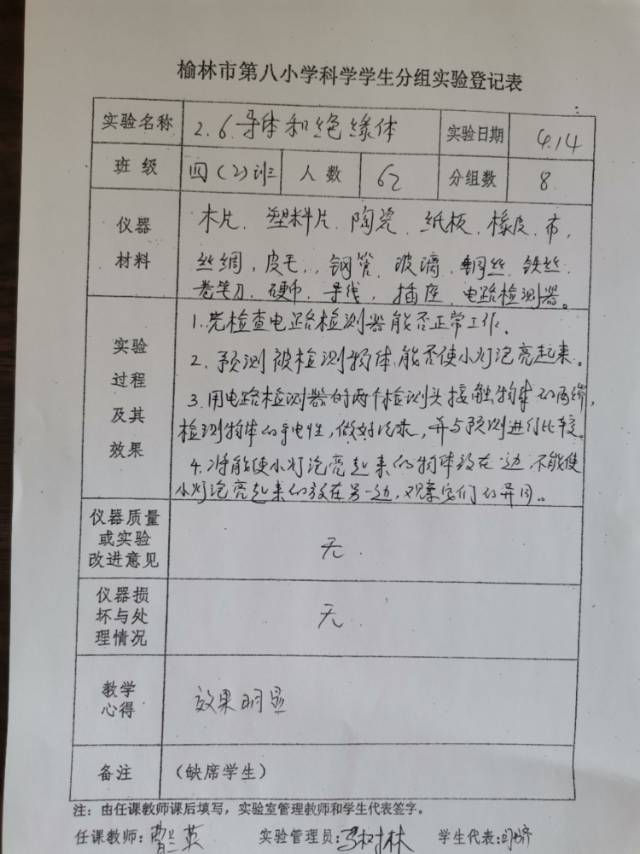 榆林市第八小学科学学生分组实验登记表
实验名称 2.6.导体和绝缘体 实验日期 4.14
班级 四(2)班 人数 62 分组数 8
仪器材料 木片.塑料片.陶瓷.纸板.橡皮.布,
丝绸,皮毛.,钢管.玻璃.铜丝.铁丝.
卷笔刀.硬币.导线,插座.电路检测器。
实验过程及其效果 1.先检查电路检测器能否正常工作.
2.预测被检测物体能否使小灯泡亮起来.
3.用电路检测器的两个检测头接触物体的两端,
检测物体的导电性,做好记录,并与预测进行比较.
4.将能使小灯泡亮起来的物体放在一边,不能使
小灯泡亮起来的放在另一边,观察它们的异同。
仪器质量或实验改进意见 无.
仪器损坏与处理情况 无.
教学心得 效果明显
备注 (缺席学生)
注:由任课教师课后填写,实验室管理教师和学生代表签字。
任课教师: 实验管理员: 学生代表: